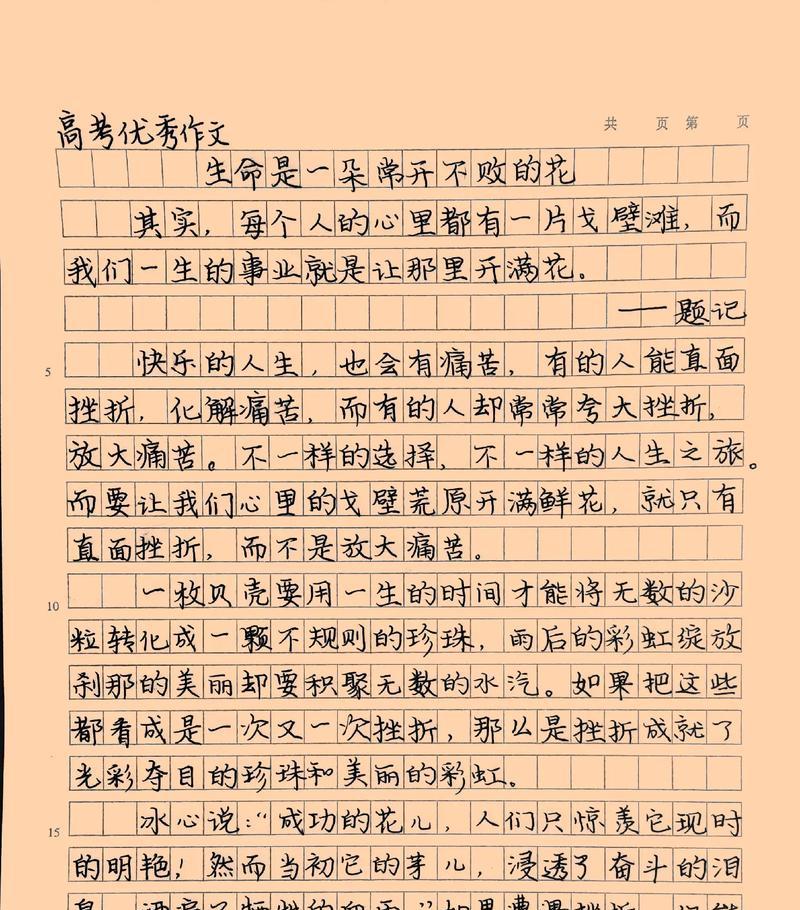 高考优秀作文
共 页 第 页
生命是一朵常开不败的花
其实，每个人的心里都有一片戈壁滩，而
我们一生的事业就是让那里开满花。
——题记
5 快乐的人生，也会有痛苦，有的人能直面
挫折，化解痛苦，而有的人却常常夸大挫折，
放大痛苦。不一样的选择，不一样的人生之旅。
而要让我们心里的戈壁荒原开满鲜花，就只有
直面挫折，而不是放大痛苦。
10 一枚贝壳要用一生的时间才能将无数的沙
粒转化成一颗不规则的珍珠，雨后的彩虹绽放
刹那的美丽却要积聚无数的水汽。如果把这些
都看成是一次又一次挫折，那么是挫折成就了
光彩夺目的珍珠和美丽的彩虹。
15 冰心说：“成功的花儿，人们只惊羡它现时
的明艳！然而当初它的芽儿，浸透了奋斗的泪